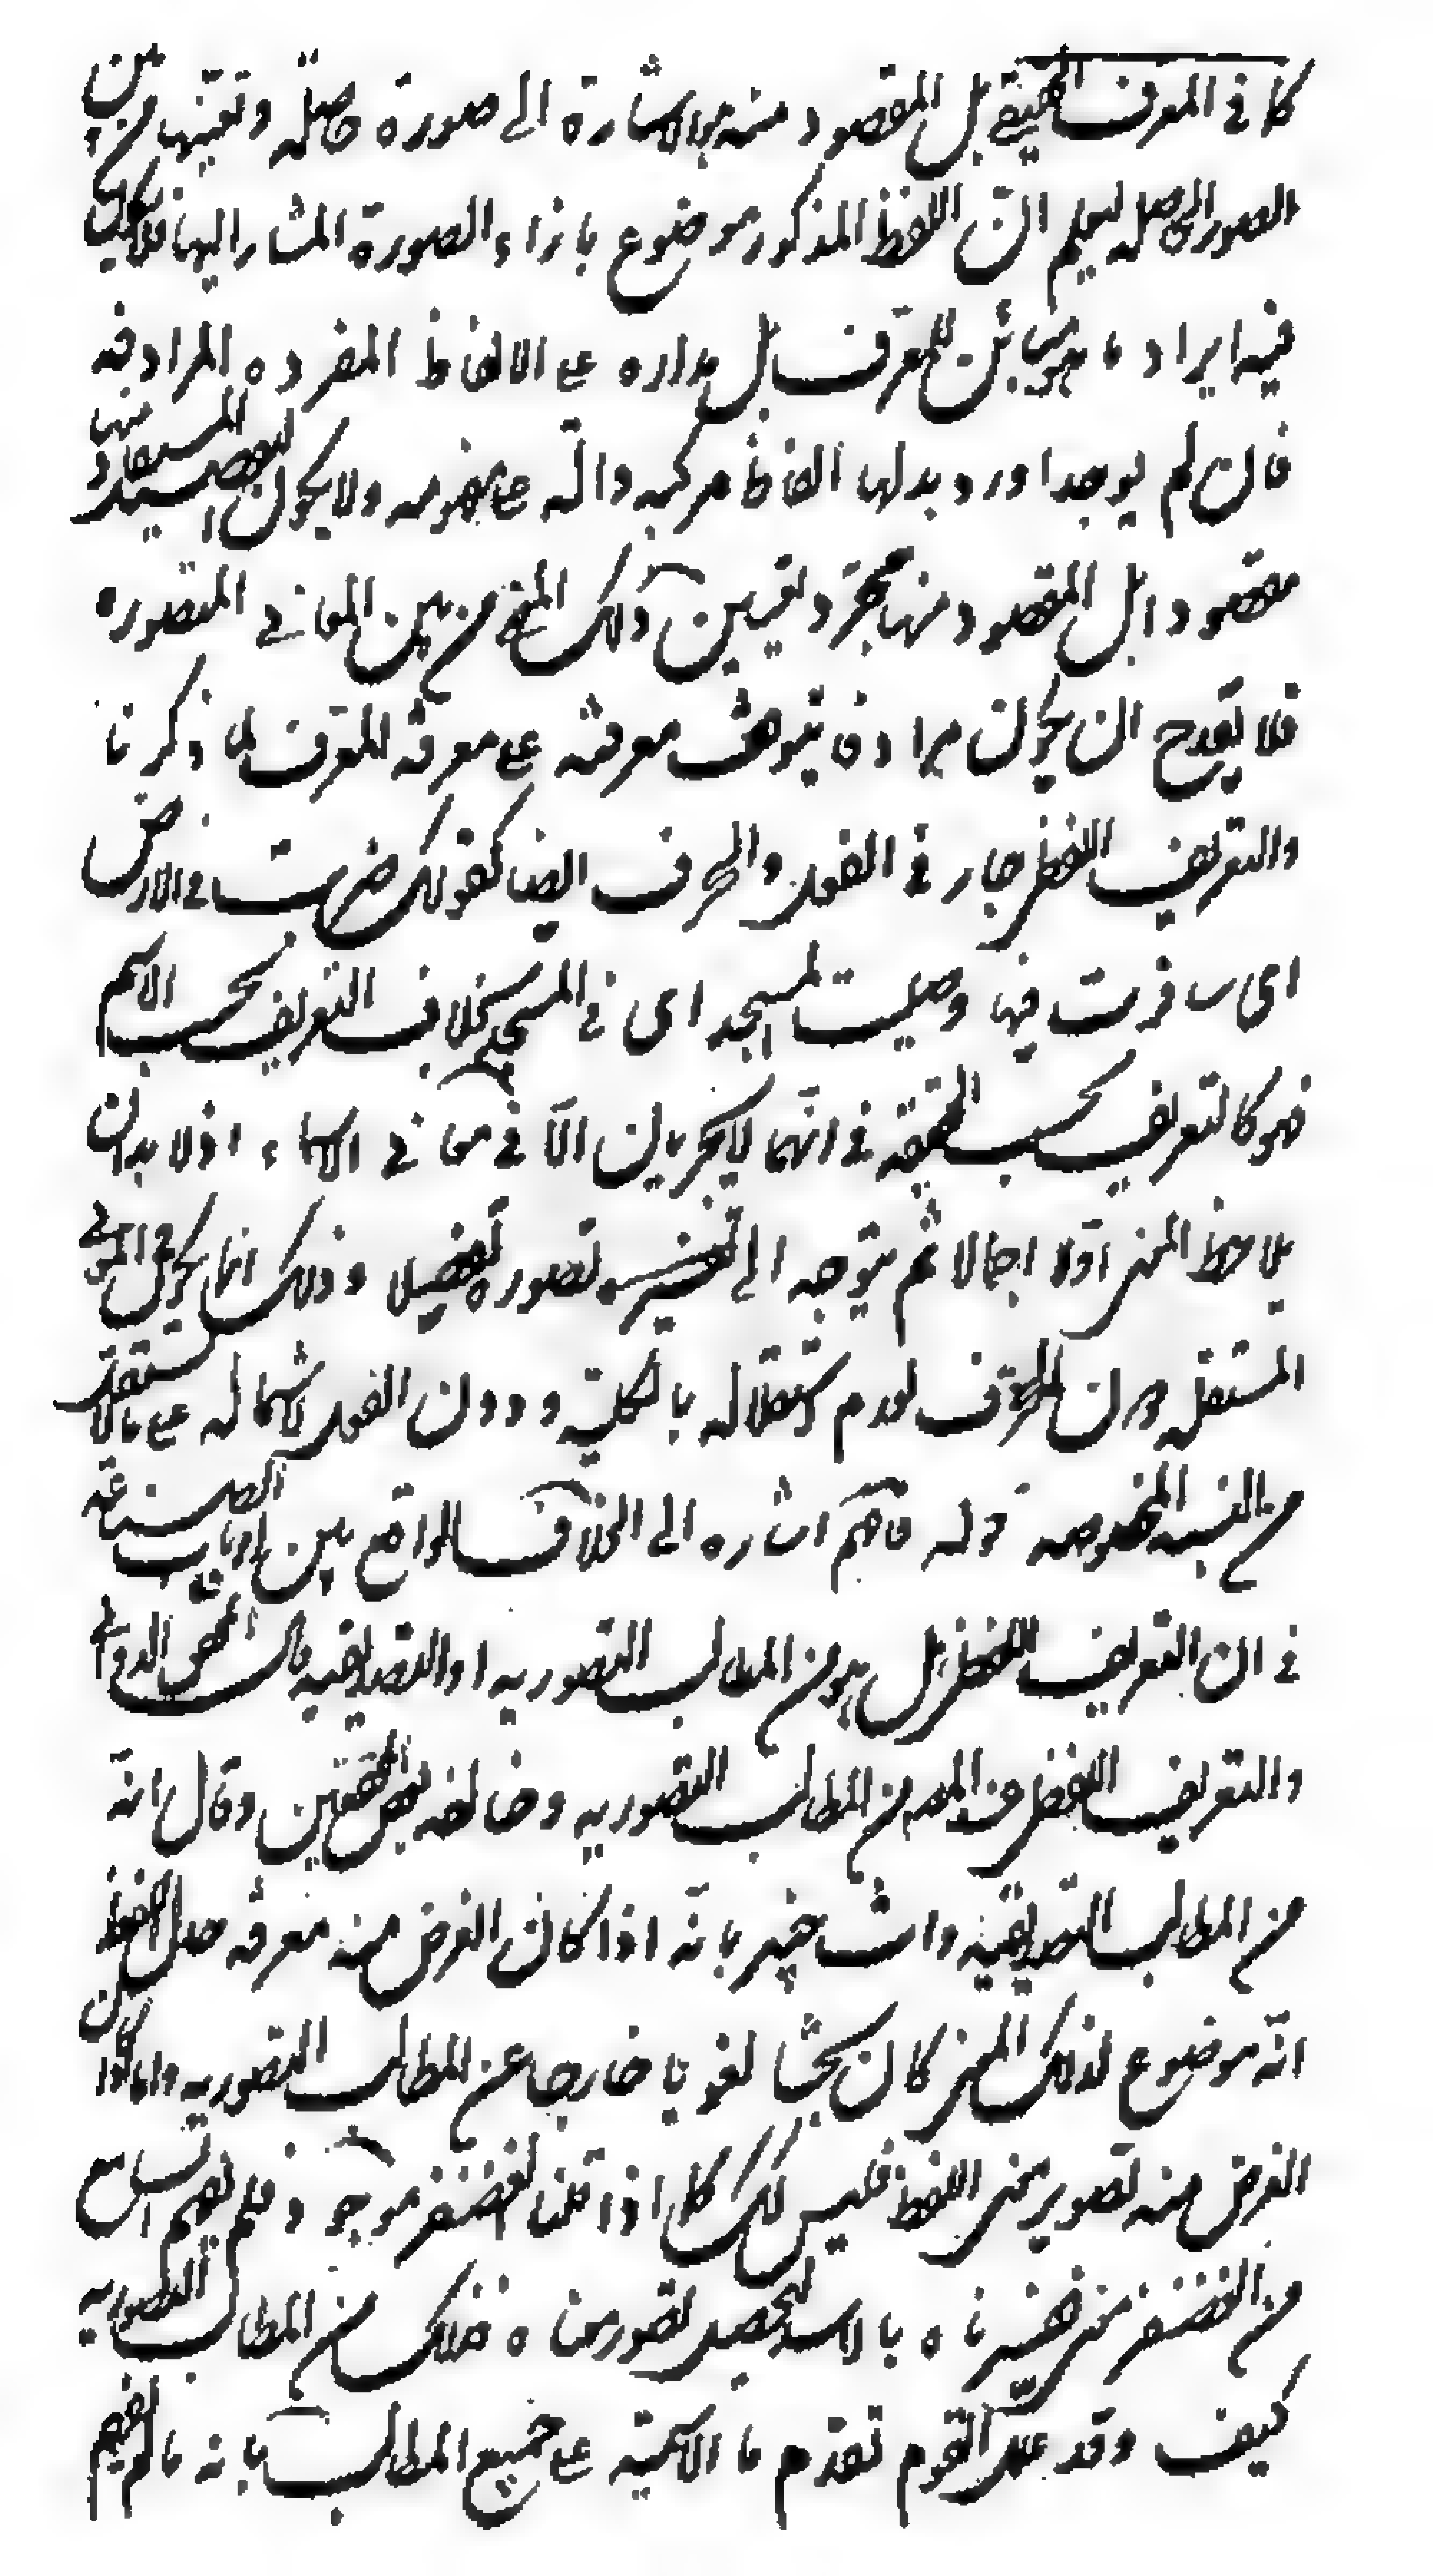 كما في المعرف الحقيقي بل المقصود منه الاشارة الى صورة حاصلة وتعينها من بين
الصور الحاصلة ليعلم ان اللفظ المذكور موضوع بازاء الصورة المشار اليها فلا يكون
فيه ايراد ما هو مبائن للمعرف بل مداره على الالفاظ المفرده المرادفه
فان لم يوجد اورد بدلها الفاظ مركبه دالة على مفهومه ولا يكون التفصيل المستفاد منها
مقصودا بل المقصود منها مجرد تعيين ذلك المعنى من بين المعاني المتصوره
فلا يقدح ان يكون مرادفا يتوقف معرفته على معرفة المعرف لما ذكرنا
والتعريف اللفظي جار في الفعل والحرف ايضا كقولك ضربت في الارض
اى سافرت فيها وصليت لمسجد اى في المسجد بخلاف التعريف بحسب الاسم
فهو كالتعريف بحسب الحقيقة في انهما لا يجريان الا في معاني الاسماء اذ لا بد ان
يلاحظ المعنى اولا اجمالا ثم يتوجه الى تفسيره تصوره تفصيلا وذلك انما يكون في المعاني
المستقلة دون الحرف لعدم استقلاله بالكلية ودون الفعل لاشتماله على ما لا يستقل
من النسبه المخصوصه قوله فافهم اشاره الى الخلاف الواقع بين ارباب الصناعة
في ان التعريف اللفظي هل هو من المطالب التصوريه او التصديقيه قال المحقق الدواني
والتعريف اللفظي من المطالب التصوريه وخالفه بعض المحققين وقال انه
من المطالب التصديقيه وانت خبير بانه اذا كان الغرض منه معرفة حال اللفظ
انه موضوع لذلك المعنى كان بحثا لغويا خارجا عن المطالب التصوريه واما اذا كان
الغرض منه تصوير معنى اللفظ فليس كذلك كما اذا قلنا الغضنفر موجود فلم يفهم السامع
من الغضنفر معنى ففسرناه بالاسد ليحصل تصور معناه فذلك من المطالب التصوريه
كيف وقد علل القوم تقدم ما الاسمية على جميع المطالب بانه ما لم يفهم